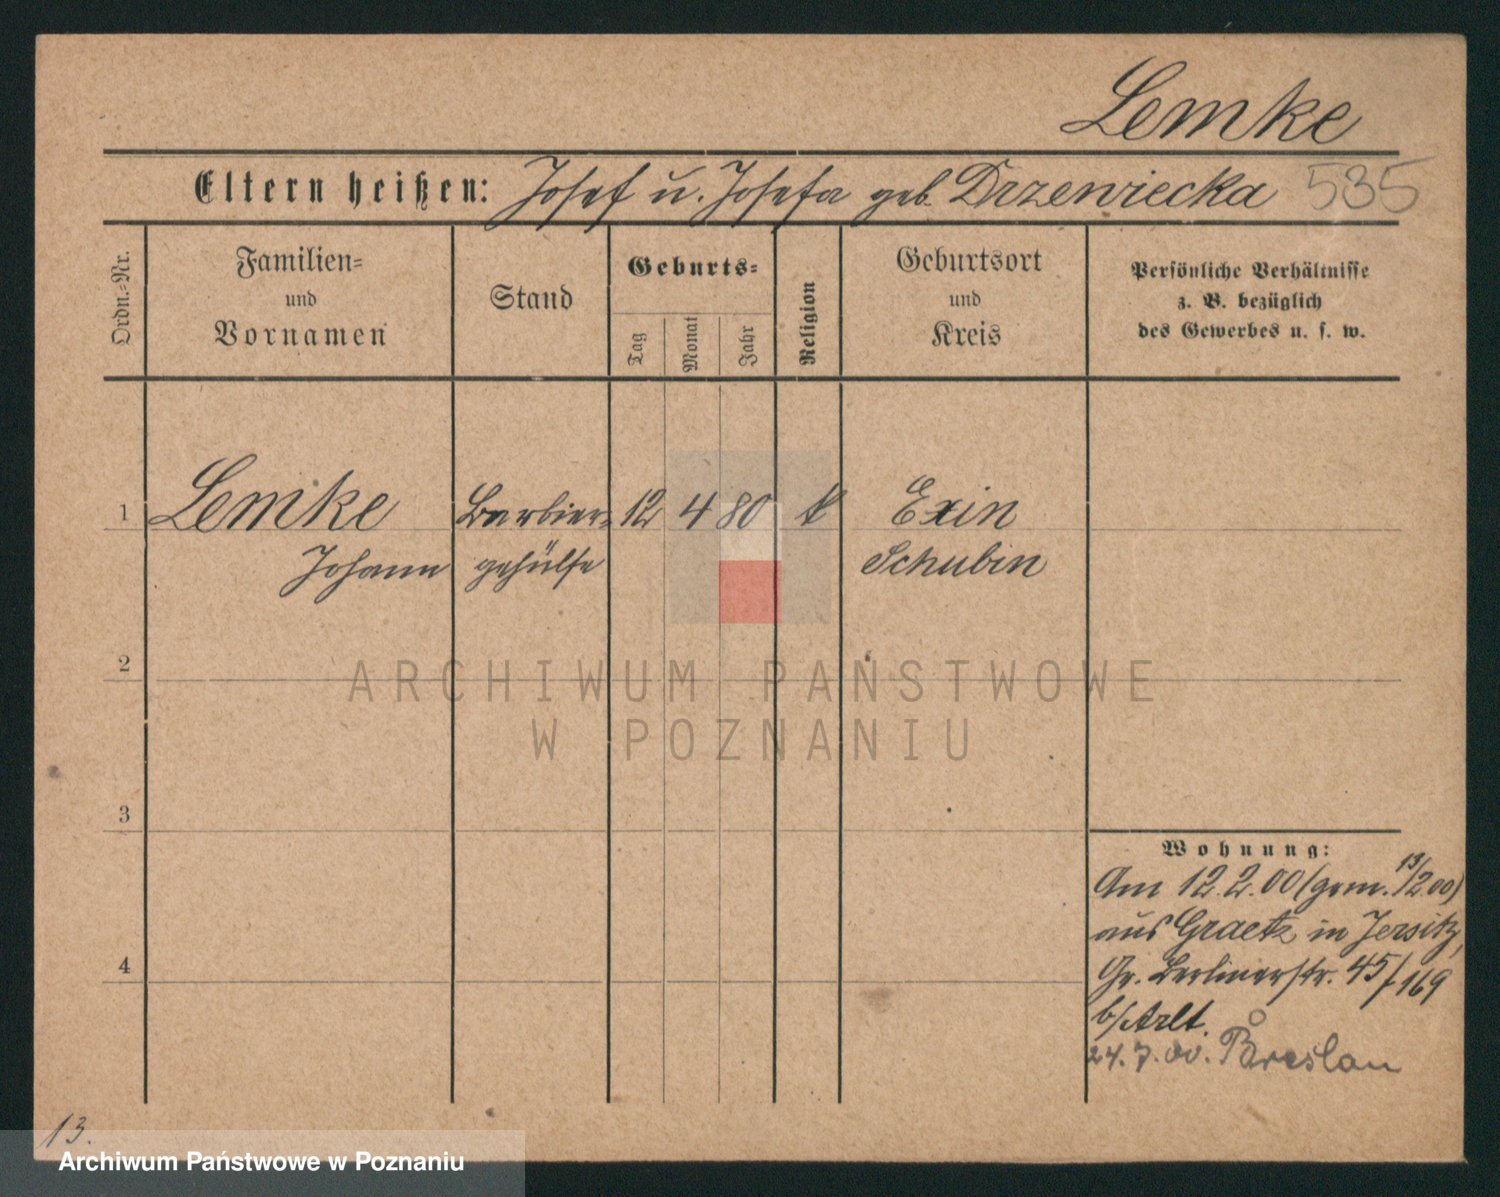 Lemke
Eltern heißen: Josef u. Josefa geb. Drzewiecka 535
Ordn.=Nr.
Familien=
und
Vornamen
Stand
Geburts=
Tag
Monat
Jahr
Religion
Geburtsort
und
Kreis
Persönliche Verhältnisse
z. B. bezüglich
des Gewerbes u. s. w.
1 Lemke Barbier= 12 4 80 k Exin
Johann gehülfe Schubin
2
ARCHIWUM PAŃSTWOWE
W POZNANIU
3
Wohnung:
Am 12.2.00 (gem. 13/2.00)
aus Graetz in Jersitz,
4
Gr. Berlinerstr. 45/169
b/Arlt.
24.7.00. Breslau
13.
Archiwum Państwowe w Poznaniu